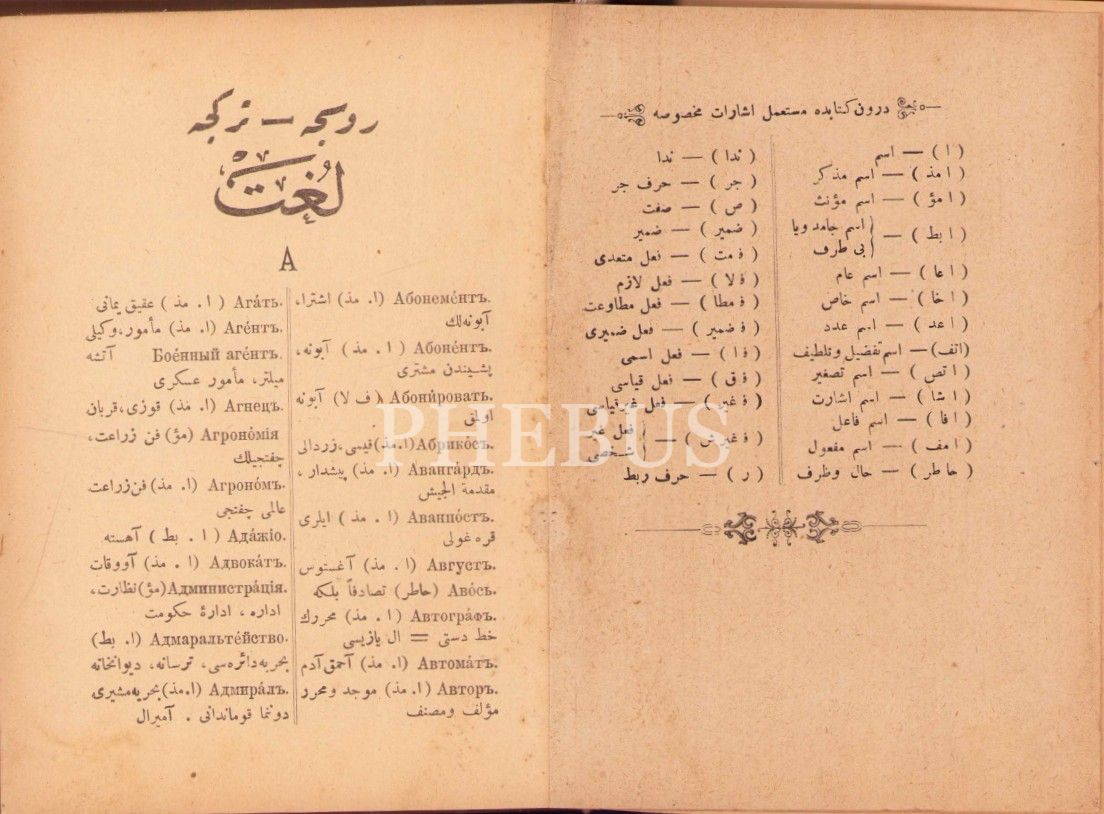 درون کتابده مستعمل اشارات مخصوصه
( ا ) — اسم
( امذ ) — اسم مذکر
( امؤ ) — اسم مؤنث
( ابط ) — { اسم جامد ویا
بی طرف
( اعا ) — اسم عام
( اخا ) — اسم خاص
( اعد ) — اسم عدد
(اتف) — اسم تفضیل وتلطیف
( اتص ) — اسم تصغیر
( اشا ) — اسم اشارت
( افا ) — اسم فاعل
( امف ) — اسم مفعول
( حاطر ) — حال وظرف
( ندا ) — ندا
( جر ) — حرف جر
( ص ) — صفت
( ضمیر ) — ضمیر
( فمت ) — فعل متعدی
( فلا ) — فعل لازم
( فمطا ) — فعل مطاوعت
( فضمیر ) — فعل ضمیری
( فا ) — فعل اسمی
( فق ) — فعل قیاسی
( فغیر ) — فعل غیرقیاسی
( فغیرش ) — { فعل غیر
شخصی
( ر ) — حرف ربط
روسجه — ترکجه
لُغَتْ
А
Абонеме́нтъ. (ا. مذ) اشتراء،
آبونه‌لك
Абоне́нтъ. ( ا . مذ) آبونه،
پشیندن مشتری
Абони́ровать. (ف لا) آبونه
اولمق
Абрико́съ. (ا.مذ) قیسی، زردالی
Аванга́рдъ. (ا. مذ) پیشدار،
مقدمة الجیش
Аванпо́стъ. (ا . مذ) ایلری
قره غولی
Августъ. (ا . مذ) آغستوس
Аво́сь. (حاطر) تصادفاً بلکه
Автогра́фъ. (ا . مذ) محررك
خط دستی = ال یازیسی
Автома́тъ. (ا. مذ) آحمق آدم
Авторъ. (ا. مذ) موجد ومحرر
مؤلف ومصنف
Ага́тъ. (ا . مذ) عقیق یمانی
Аге́нтъ. (ا. مذ) مأمور، وکیلی
Бое́нный аге́нтъ. آتشه
میلتر، مأمور عسکری
Агнецъ. (ا. مذ) قوزی، قربان
Агроно́мія (مؤ) فن زراعت،
چفتجیلك
Агроно́мъ. (ا. مذ) فن زراعت
عالمی چفتجی
Ада́жіо. (ا . بط) آهسته
Адвока́тъ. (ا . مذ) آووقات
Администра́ція. (مؤ) نظارت،
اداره ، ادارهٔ حکومت
Адмаральте́йство. (ا. بط)
بحریه دائره‌سی، ترسانه، دیوانخانه
Адмира́лъ. (ا.مذ) بحریه مشیری
دوننما قوماندانی . آمیرال
PHEBUS